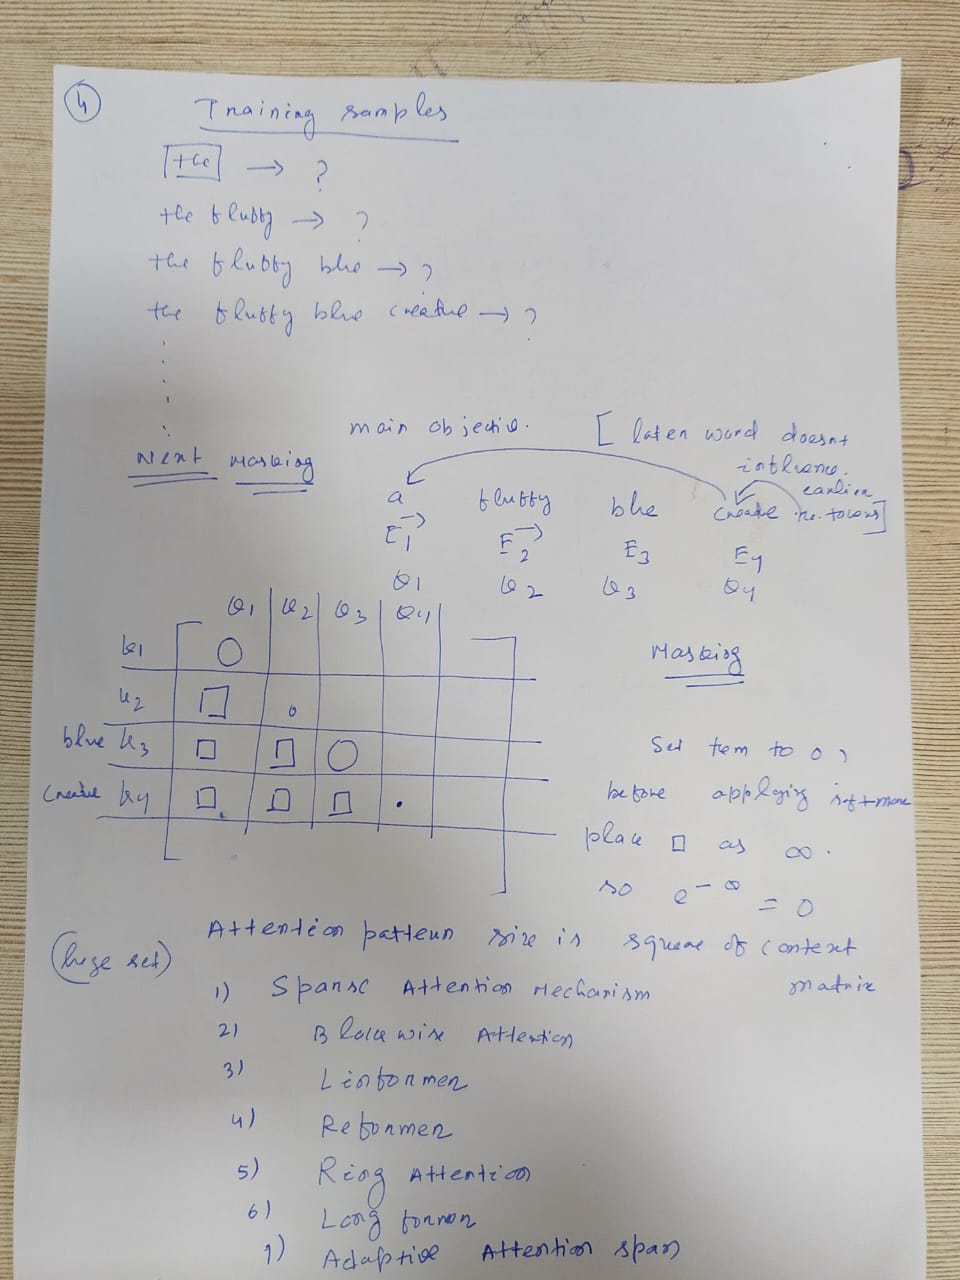 4
Training samples
the → ?
the fluffy → ?
the fluffy blue → ?
the fluffy blue creature → ?
main objective.
[ later word doesnt
influence.
earlier
Next Masking
a fluffy blue creature tokens]
E1 E2 E3 E4
Q1 Q2 Q3 Q4
Q1 Q2 Q3 Q4
K1
Masking
K2
blue K3
Set tem to 0,
creature K4
before applying softmax
place □ as ∞.
so e^-∞ = 0
Attention pattern size is square of context
matrix
(huge set)
1) Sparse Attention Mechanism
2) Blockwise Attention
3) Linformer
4) Reformer
5) Ring Attention
6) Long former
7) Adaptive Attention span